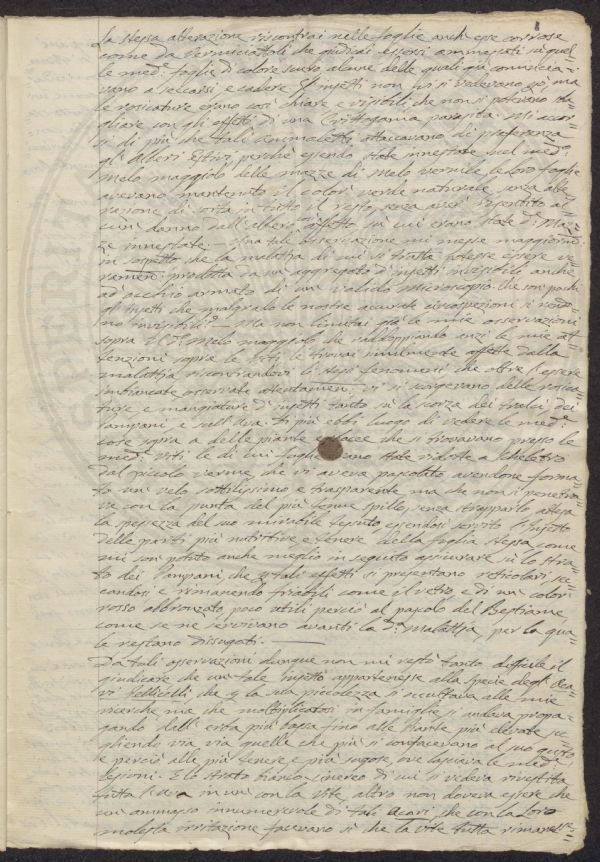 la stessa alterazione riscontrai nelle foglie anch' esse corrose
come da Vermiciattoli che giudicai essersi ammassati su quel-
le med.e foglie di colore scuro alcune delle quali già comincia-
vano a seccarsi e cadere. Gl' Insetti non ivi si vedevano però, ma
le rosicature erano così chiare e visibili, che non si potevano sba-
gliare con gli effetti di una Crittogama parassita. Mi accor-
si di più che tali Animaletti attaccavano di preferenza
gl' Alberi Estivi perchè essendo state innestate sul med.o
Melo maggiolo delle mazze di Melo vernile, le loro foglie
avevano mantenuto il color verde naturale, senza alte-
razione di sorta in tutto il resto, senza aver risentito al-
cun danno dall' albero infetto su cui erano state le Maz-
ze innestate. – Una tale osservazione mi messe maggiorm.e
in sospetto che la malattia di cui si tratta potesse essere ve-
ramen: prodotta da un aggregato d' insetti invisibile anche
ad occhio armato di un valido Microscopio. Che son pochi
gl' Insetti che malgrado le nostre accurate circospezioni si rendo-
no invisibili? – Ma non limitai già le mie osservazioni
sopra il d.o Melo maggiolo, che raddoppiando anzi le mie at-
tenzioni sopra le Viti le trovai similmente affette dalla
malattia riscontrandovi li stessi fenomeni che oltre l' essere
imbiancate osservate attentamen: vi si scorgevano delle rosica-
ture, e mangiature d' insetti tanto su la scorza dei tralci, dei
Pampani, e sull' Uva. Di più ebbi luogo di vedere le med.e
cose sopra a delle piante che si trovavano presso le
med.e Viti le di cui foglie erano state ridotte a scheletro
dal piccolo verme che vi aveva pascolato avendone forma-
to un velo sottilissimo e trasparente ma che non si penetra-
va con la punta del più tenue spillo, senza strapparlo attesa
la spessezza del suo mirabile tessuto essendosi servito l' Insetto
delle parti più nutritive e tenere della foglia stessa, come
mi son potuto anche meglio in seguito assicurare su lo stra-
to dei Pampani, che p. tali effetti si presentano reticolari sec-
candosi e rimanendo friabili come il vetro, e di un color
rosso abbronzato poco utili perciò al pascolo del Bestiame,
come se ne servivano avanti la d.a Malattia, per la qua-
le restano disugati. –
Da tali osservazioni dunque non mi restò tanto difficile il
giudicare che un tale Insetto appartenesse alla specie degl' Aca-
ri Pellicelli che p. la sua piccolezza si occultava alle mie
ricerche ma che moltiplicatosi in famiglie si andava propa-
gando dall' erba più bassa fino alle Piante più elevate sce-
gliendo via via quelle che più si confacevano al suo gusto,
e perciò alle più tenere, e più sugose, ove lasciava le med.e
lesioni. E lo strato bianco-cinereo di cui si vedeva rivestita
tutta l' Uva in un con la Vite, altro non doveva essere che
un ammasso innumerevole di tali Acari, che con la loro
molesta irritazione facevano sì che la Vite tutta rimanes-